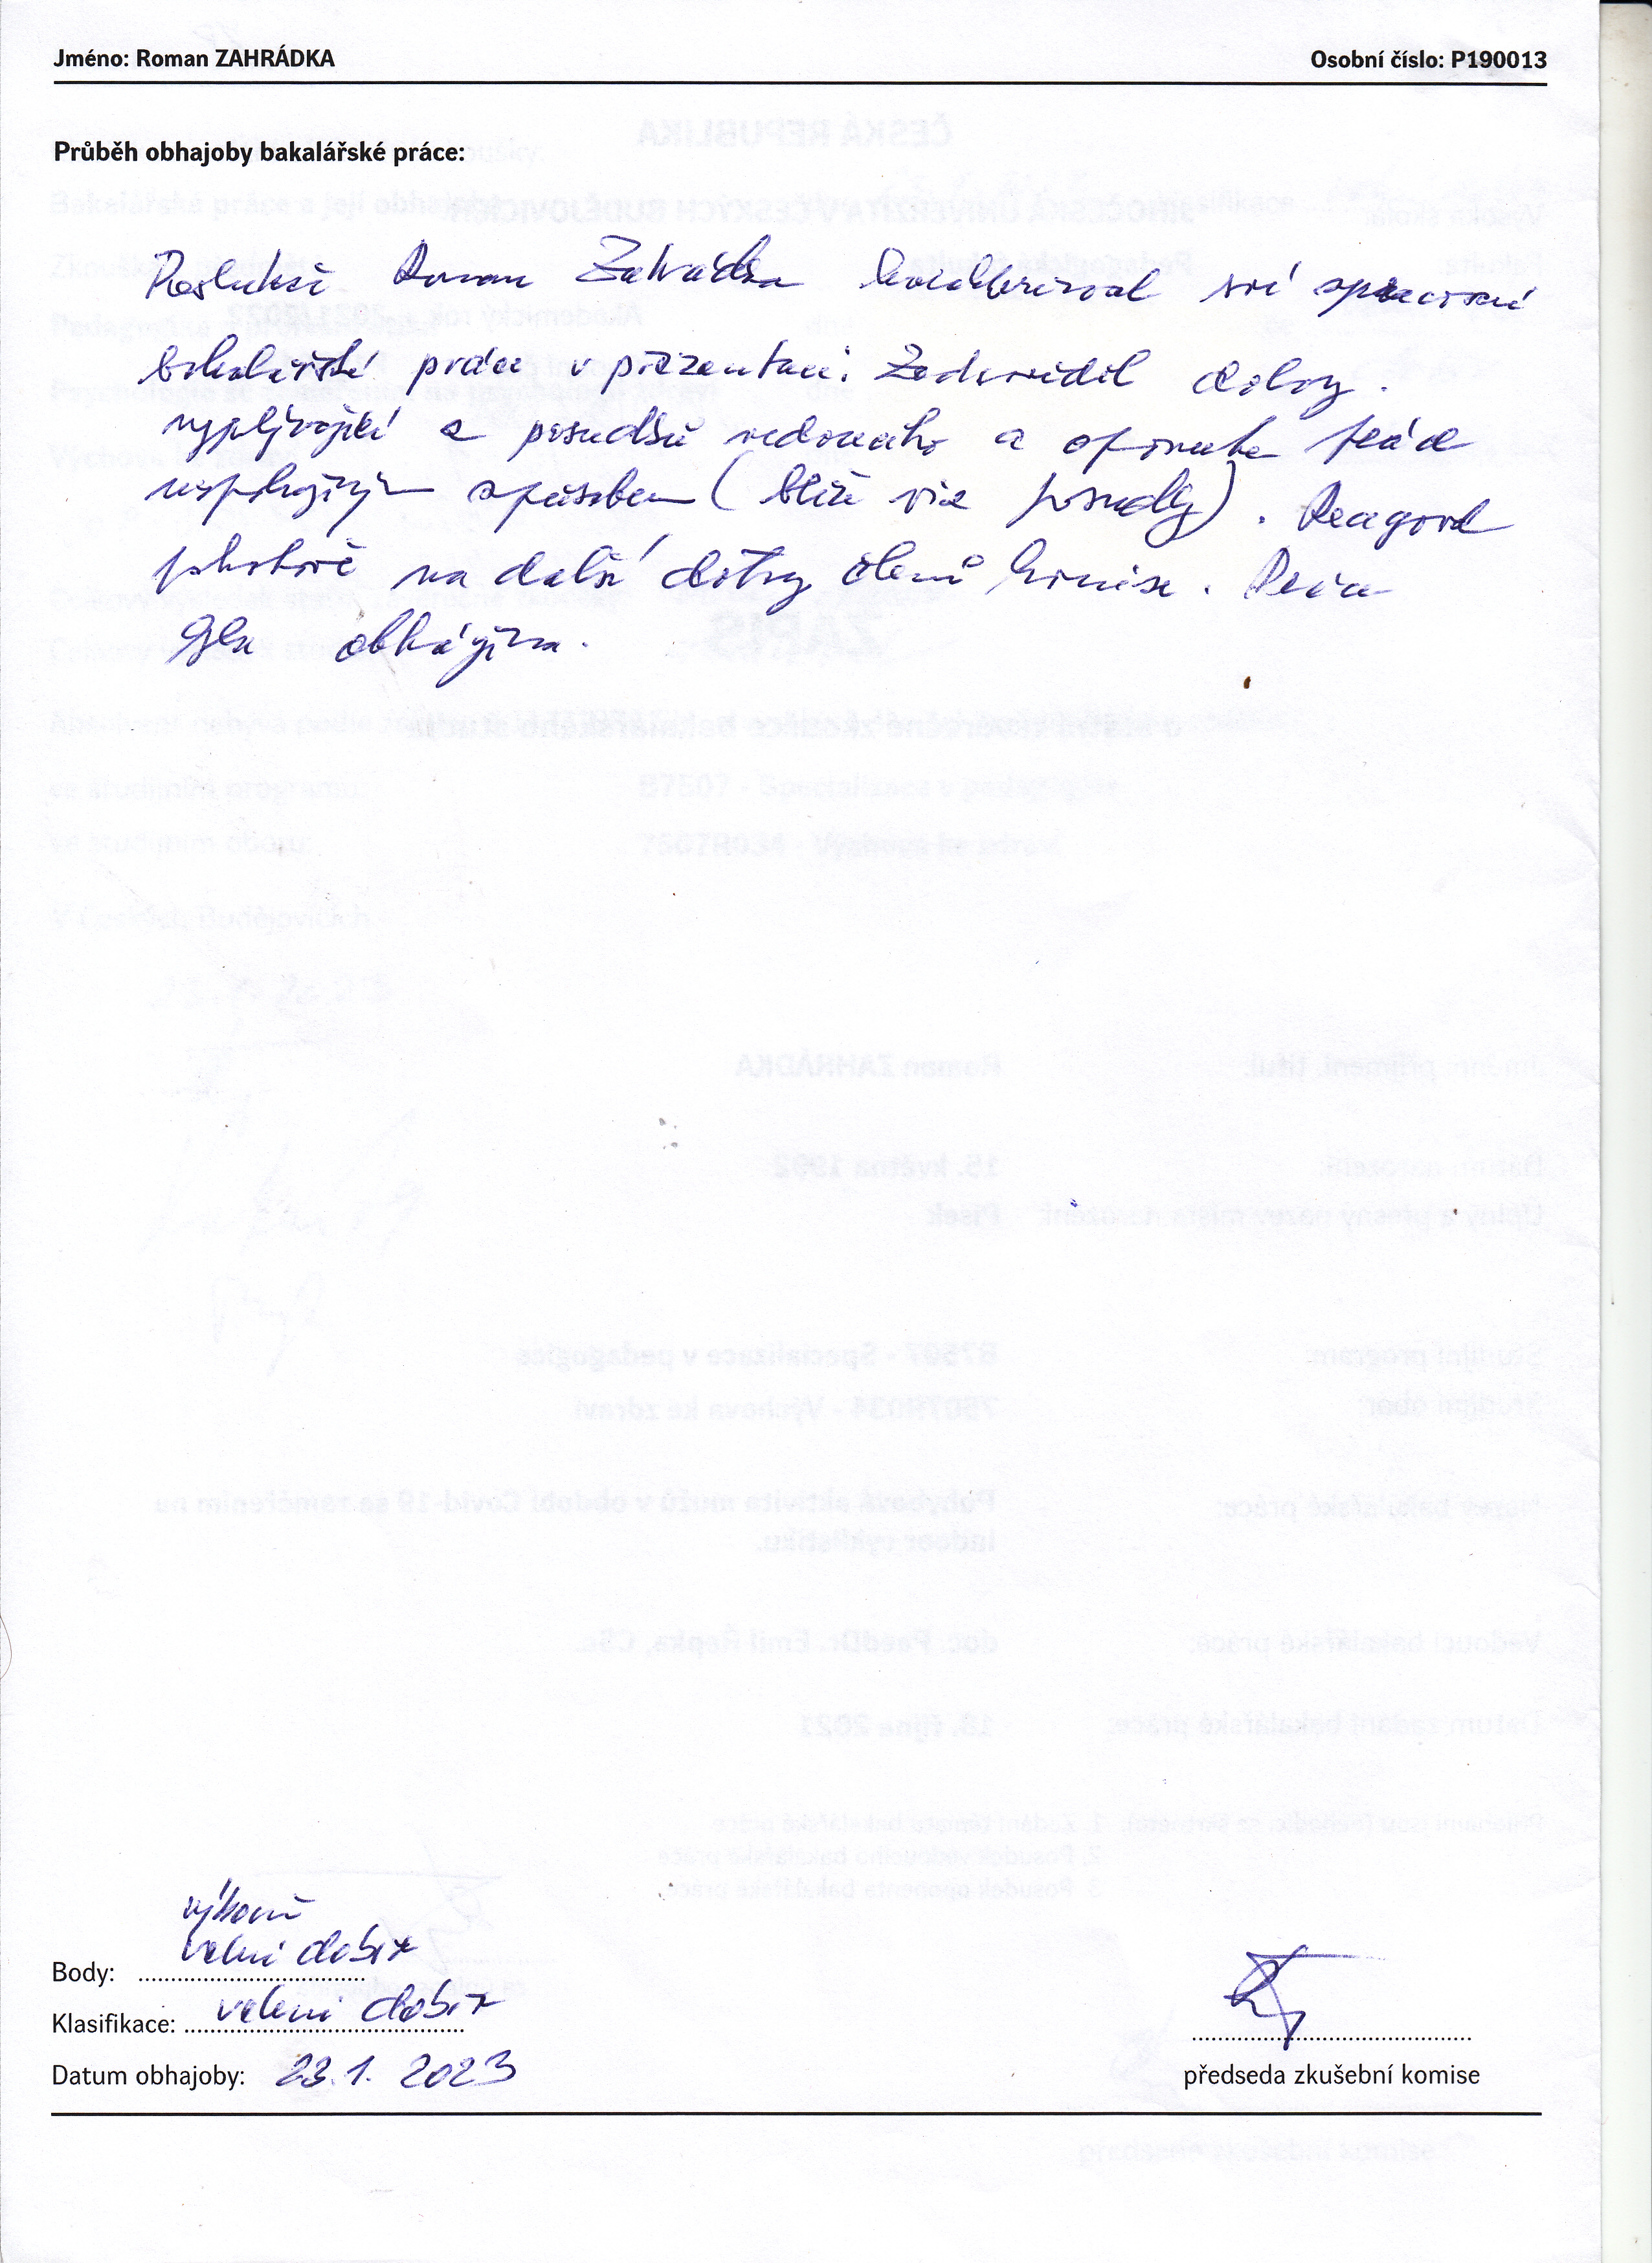 Jméno: Roman ZAHRÁDKA
Osobní číslo: P190013
Průběh obhajoby bakalářské práce:
Roman Zahrádka své zpracování
bakalářské práce v prezentaci. Zodpovídil dotazy
vyplývající z posudků vedoucího a oponenta práce
způsobem (blíže viz posudky). Reagoval
pohotově na další dotazy členů komise. Práce
byla obhájena.
výborně
velmi dobře
Body:
Klasifikace: velmi dobře
Datum obhajoby: 23.1. 2023
předseda zkušební komise